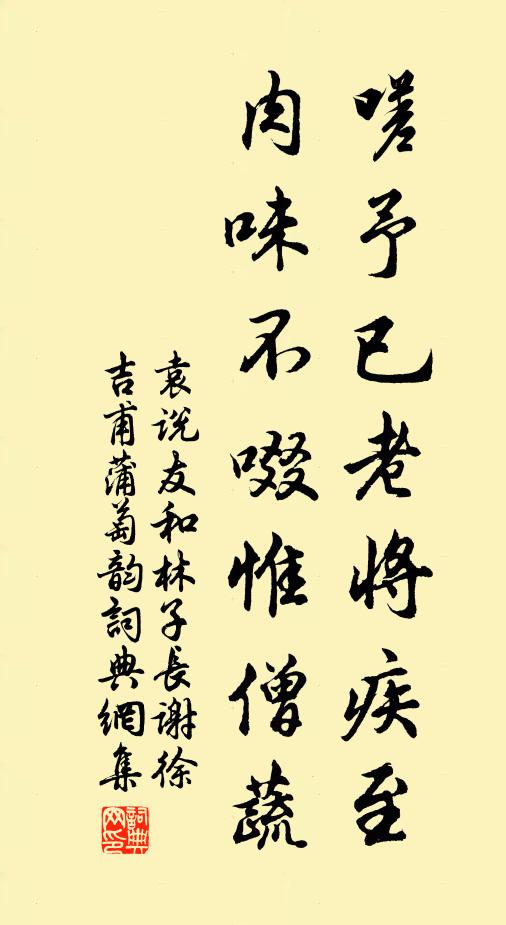 嗟予已老将疾至
肉味不啜惟僧蔬
袁说友和林子長谢徐
吉甫蒲萄韵詞典網集
詞典網印